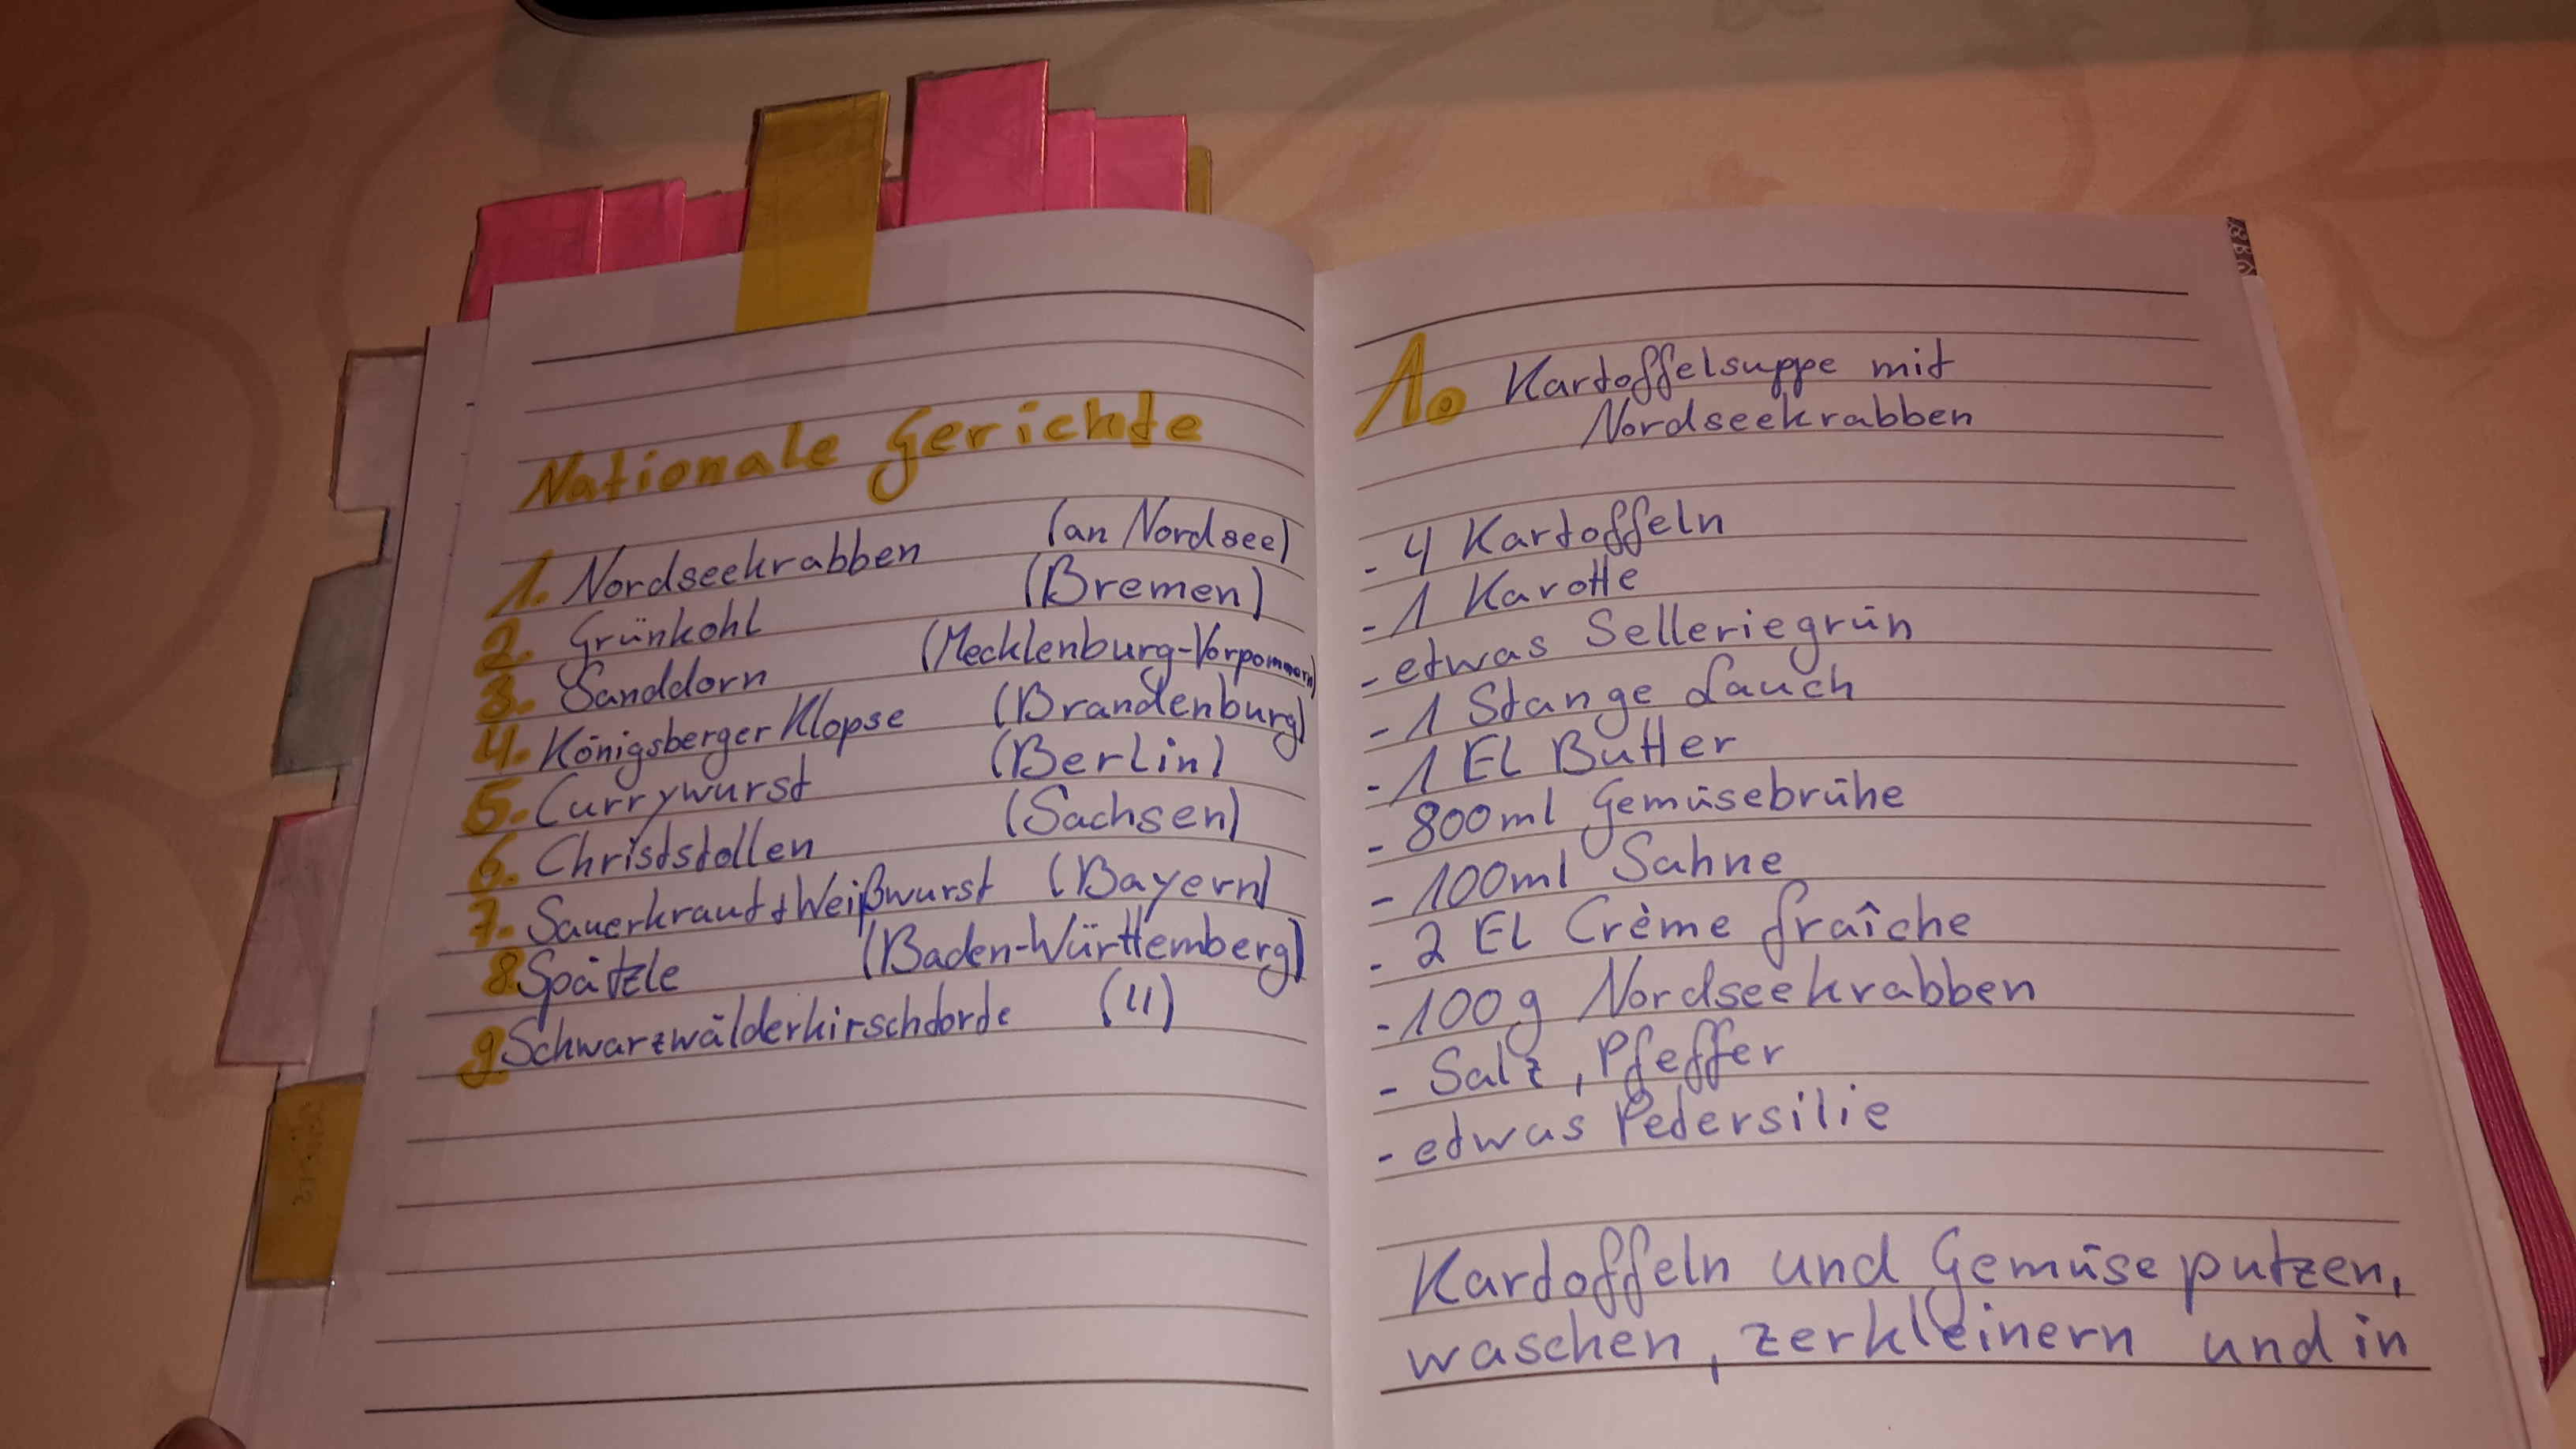 Nationale Gerichte
1. Nordseekrabben (an Nordsee)
2. Grünkohl (Bremen)
3. Sanddorn (Mecklenburg-Vorpommern)
4. Königsberger Klopse (Brandenburg)
5. Currywurst (Berlin)
6. Christstollen (Sachsen)
7. Sauerkraut + Weißwurst (Bayern)
8. Spätzle (Baden-Württemberg)
9. Schwarzwälderkirschdorde (11)
1. Kartoffelsuppe mit
Nordseekrabben
- 4 Kartoffeln
- 1 Karotte
- etwas Selleriegrün
- 1 Stange Lauch
- 1 El Butter
- 800ml Gemüsebrühe
- 100ml Sahne
- 2 El Crème fraîche
- 100g Nordseekrabben
- Salz, Pfeffer
- etwas Petersilie
Kartoffeln und Gemüse putzen,
waschen, zerkleinern und in